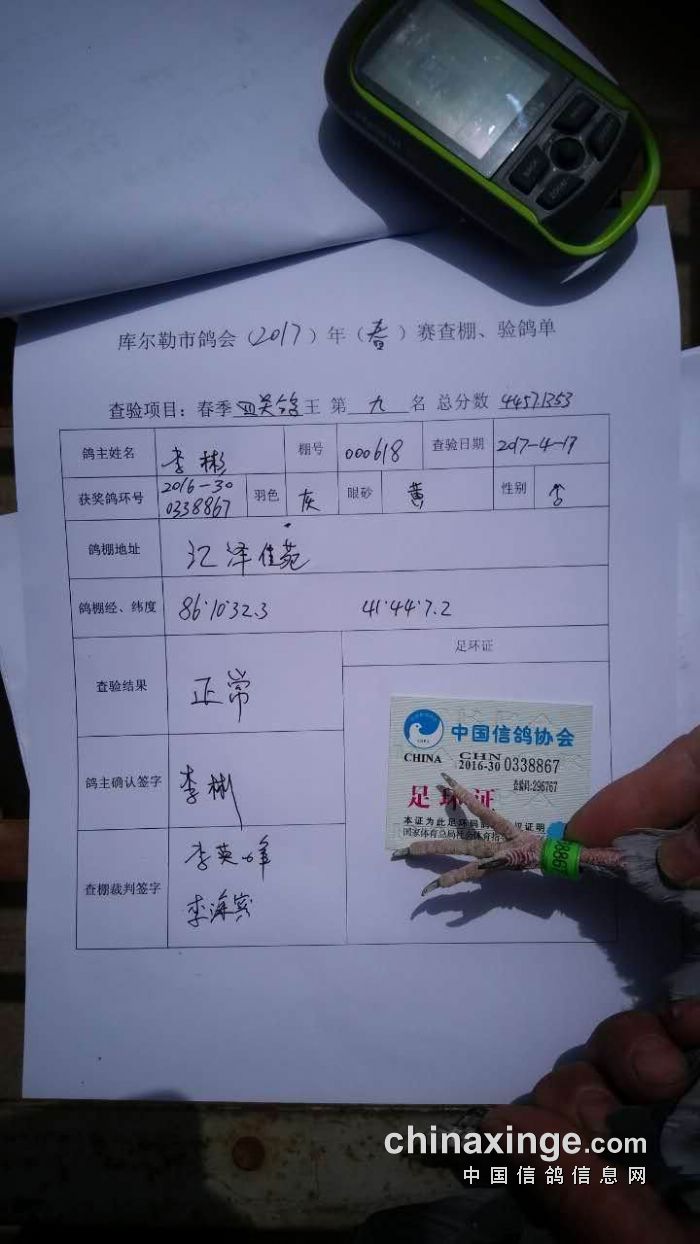 库尔勒市鸽会（2017）年（春）赛查棚、验鸽单
查验项目：春季 四关鸽 王 第 九 名 总分数 4457.1353
鸽主姓名 李彬 棚号 000618 查验日期 2017-4-17
获奖鸽环号 2016-30 0338867 羽色 灰 眼砂 黄 性别
鸽棚地址 汇泽佳苑
鸽棚经、纬度 86°10'32.3 41°44'7.2
查验结果 正常
足环证
鸽主确认签字 李彬
查棚裁判签字 李英峰
李海宾
中国信鸽协会
CHINA CHN
2016-30 0338867
查编码:296767
足环证
本证为此足环
权证明
国家体育总局社会体育指
38867
chinaxinge.com
中国信鸽信息网